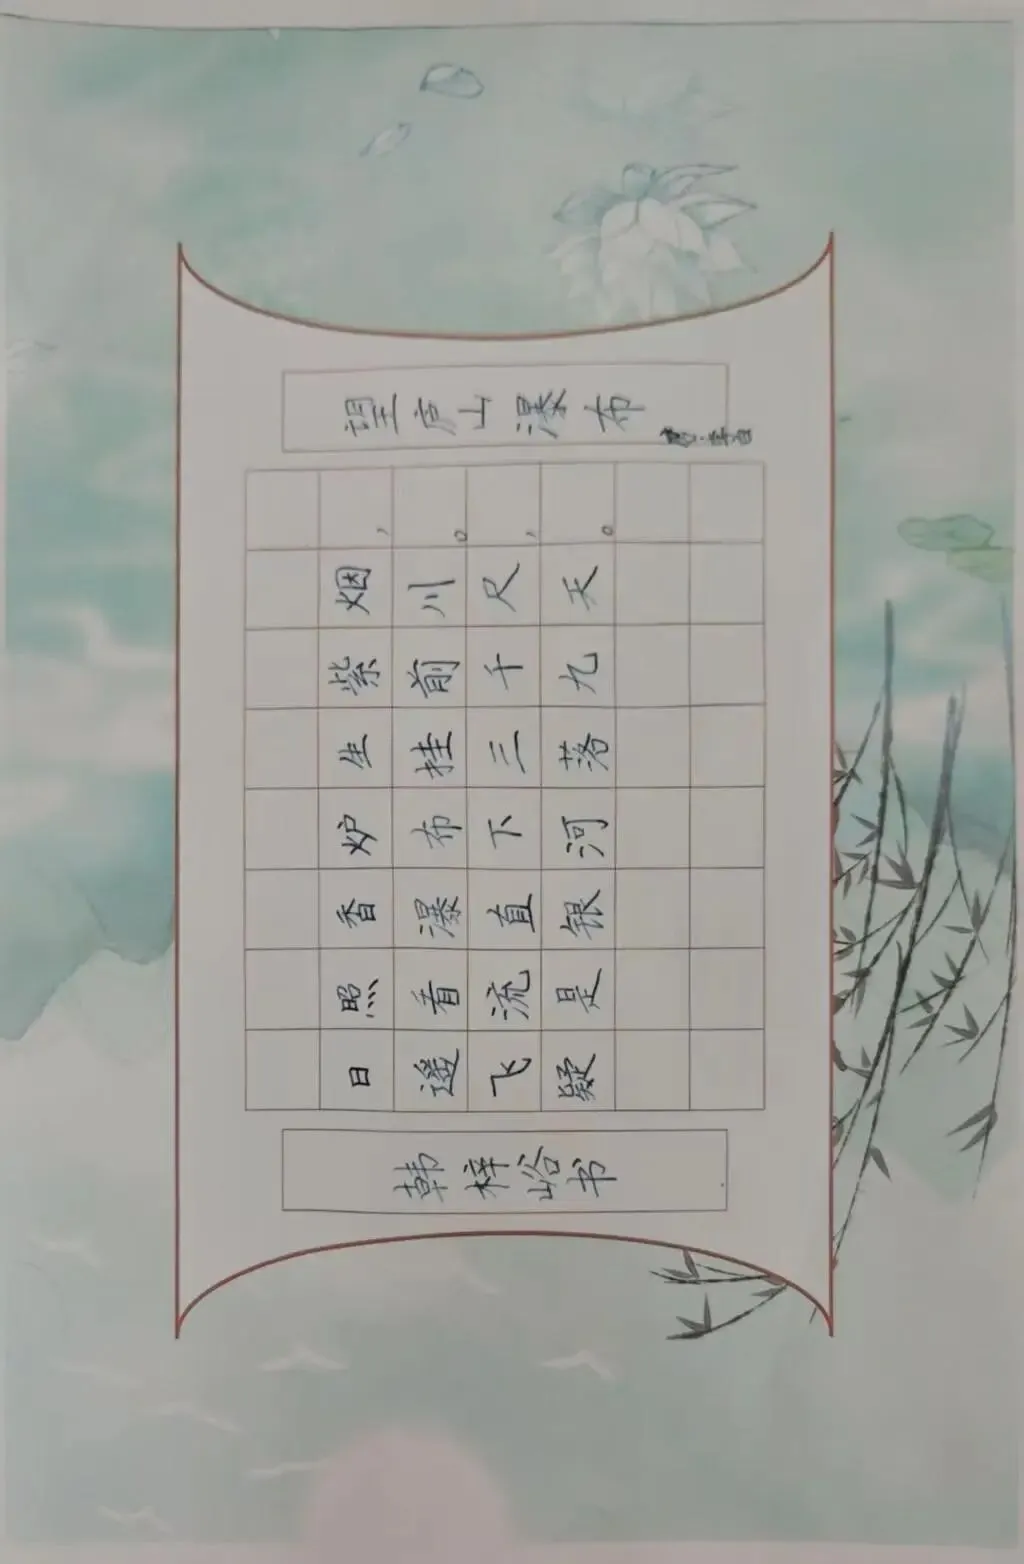 望庐山瀑布
唐·李白
日照香炉生紫烟，
遥看瀑布挂前川。
飞流直下三千尺，
疑是银河落九天。
韩梓峪书